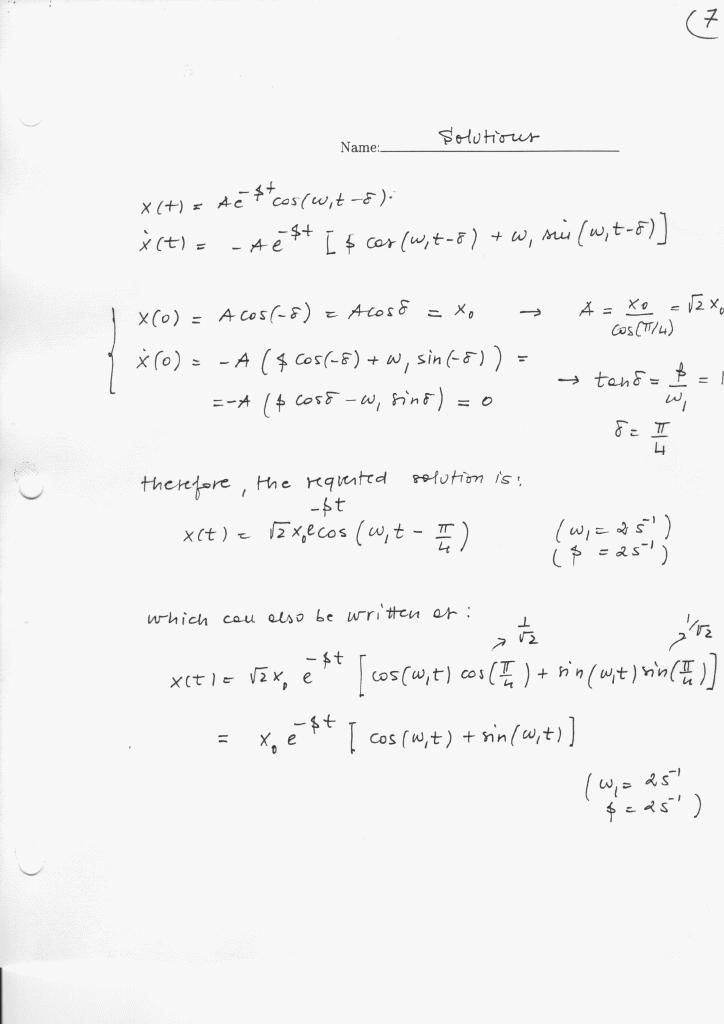 (7
Name: Solutions
x(t) = A e^{-βt} cos(ω₁t - δ).
ẋ(t) = - A e^{-βt} [β cos(ω₁t-δ) + ω₁ sin(ω₁t-δ)]
x(0) = A cos(-δ) = A cosδ = x₀ → A = x₀/cos(π/4) = √2 x₀
ẋ(0) = -A (β cos(-δ) + ω₁ sin(-δ)) =
= -A (β cosδ - ω₁ sinδ) = 0 → tanδ = β/ω₁ = 1
δ = π/4
therefore, the requested solution is:
x(t) = √2 x₀ e^{-βt} cos(ω₁t - π/4) (ω₁ = 2 s⁻¹)
(β = 2 s⁻¹)
which can also be written as:
→ 1/√2 ↗ 1/√2
x(t) = √2 x₀ e^{-βt} [cos(ω₁t) cos(π/4) + sin(ω₁t) sin(π/4)]
= x₀ e^{-βt} [cos(ω₁t) + sin(ω₁t)]
(ω₁ = 2 s⁻¹
β = 2 s⁻¹)